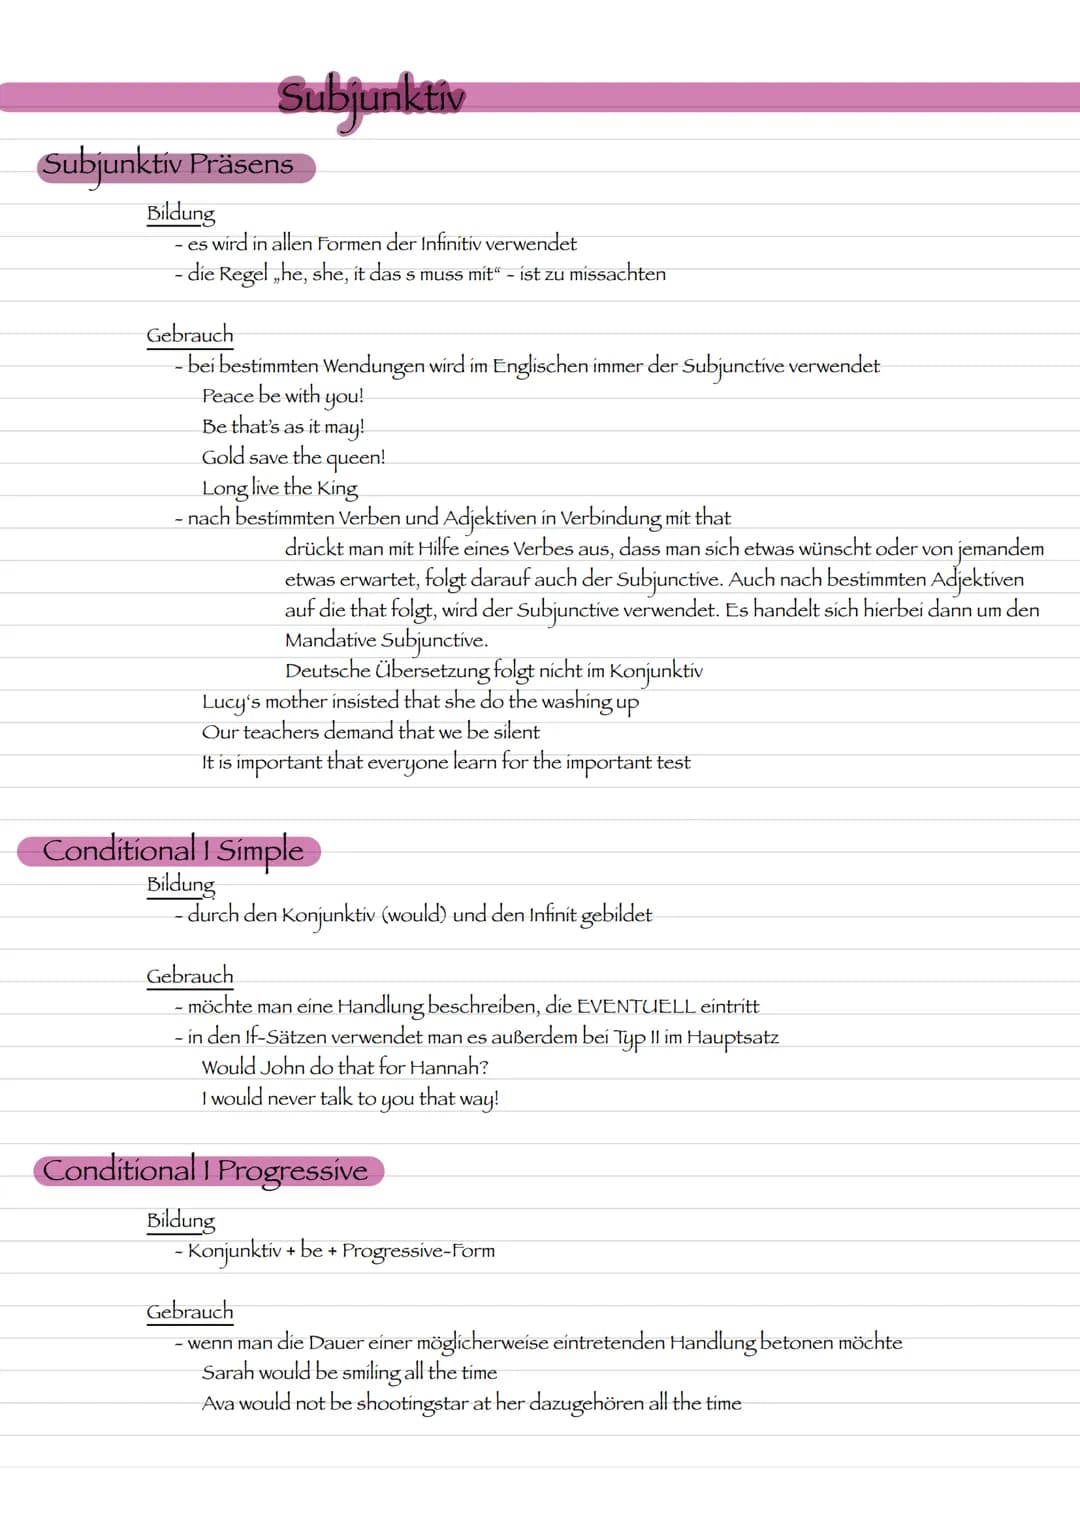 Subjunktiv
Subjunktiv Präsens
Bildung
- es wird in allen Formen der Infinitiv verwendet
- die Regel „he, she, it das s muss mit“ - ist zu missachten
Gebrauch
- bei bestimmten Wendungen wird im Englischen immer der Subjunctive verwendet
Peace be with you!
Be that's as it may!
Gold save the queen!
Long live the King
- nach bestimmten Verben und Adjektiven in Verbindung mit that
drückt man mit Hilfe eines Verbes aus, dass man sich etwas wünscht oder von jemandem
etwas erwartet, folgt darauf auch der Subjunctive. Auch nach bestimmten Adjektiven
auf die that folgt, wird der Subjunctive verwendet. Es handelt sich hierbei dann um den
Mandative Subjunctive.
Deutsche Übersetzung folgt nicht im Konjunktiv
Lucy‘s mother insisted that she do the washing up
Our teachers demand that we be silent
It is important that everyone learn for the important test
Conditional I Simple
Bildung
- durch den Konjunktiv (would) und den Infinit gebildet
Gebrauch
- möchte man eine Handlung beschreiben, die EVENTUELL eintritt
- in den If-Sätzen verwendet man es außerdem bei Typ II im Hauptsatz
Would John do that for Hannah?
I would never talk to you that way!
Conditional I Progressive
Bildung
- Konjunktiv + be + Progressive-Form
Gebrauch
- wenn man die Dauer einer möglicherweise eintretenden Handlung betonen möchte
Sarah would be smiling all the time
Ava would not be shootingstar at her dazugehören all the time